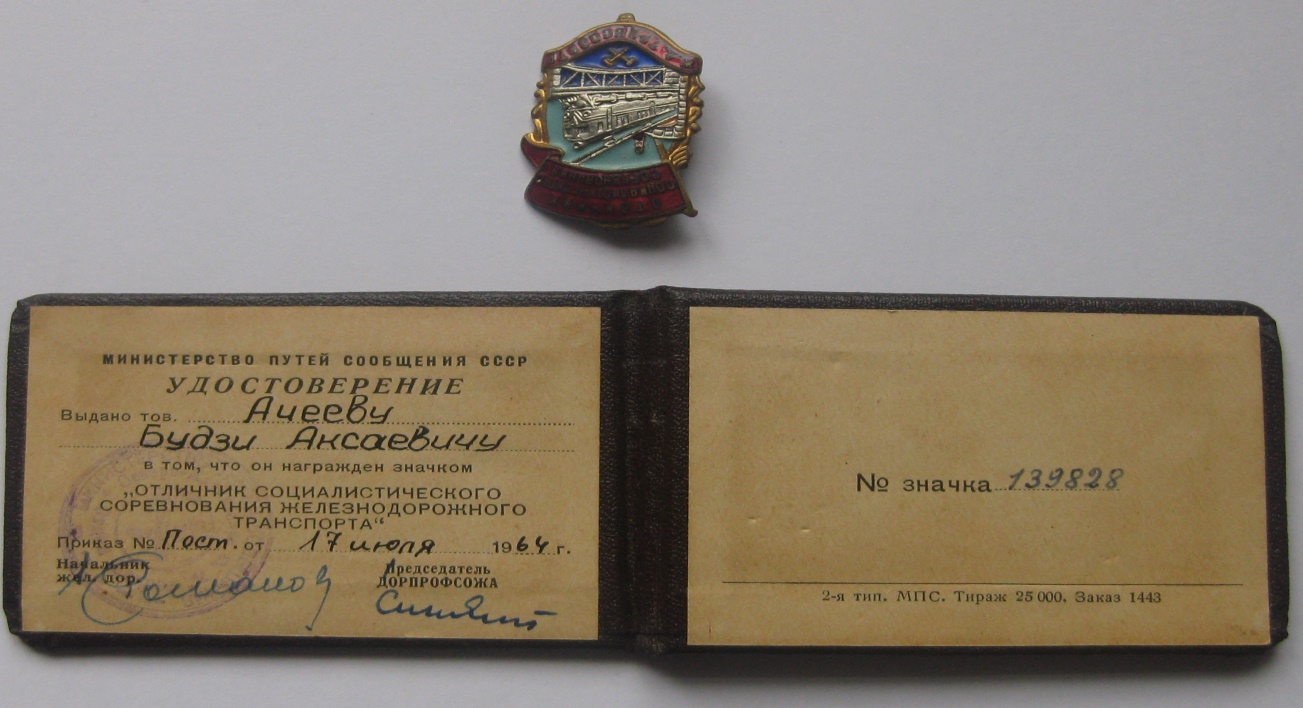 МИНИСТЕРСТВО ПУТЕЙ СООБЩЕНИЯ СССР
УДОСТОВЕРЕНИЕ
Выдано тов. Ачееву
Будзи Аксаевичу
в том, что он награжден значком
„ОТЛИЧНИК СОЦИАЛИСТИЧЕСКОГО
СОРЕВНОВАНИЯ ЖЕЛЕЗНОДОРОЖНОГО
ТРАНСПОРТА“
Приказ № Пост. от 17 июля 1964 г.
Начальник
жел. дор.
Романов
Председатель
ДОРПРОФСОЖА
№ значка 139828
2-я тип. МПС. Тираж 25 000. Заказ 1443